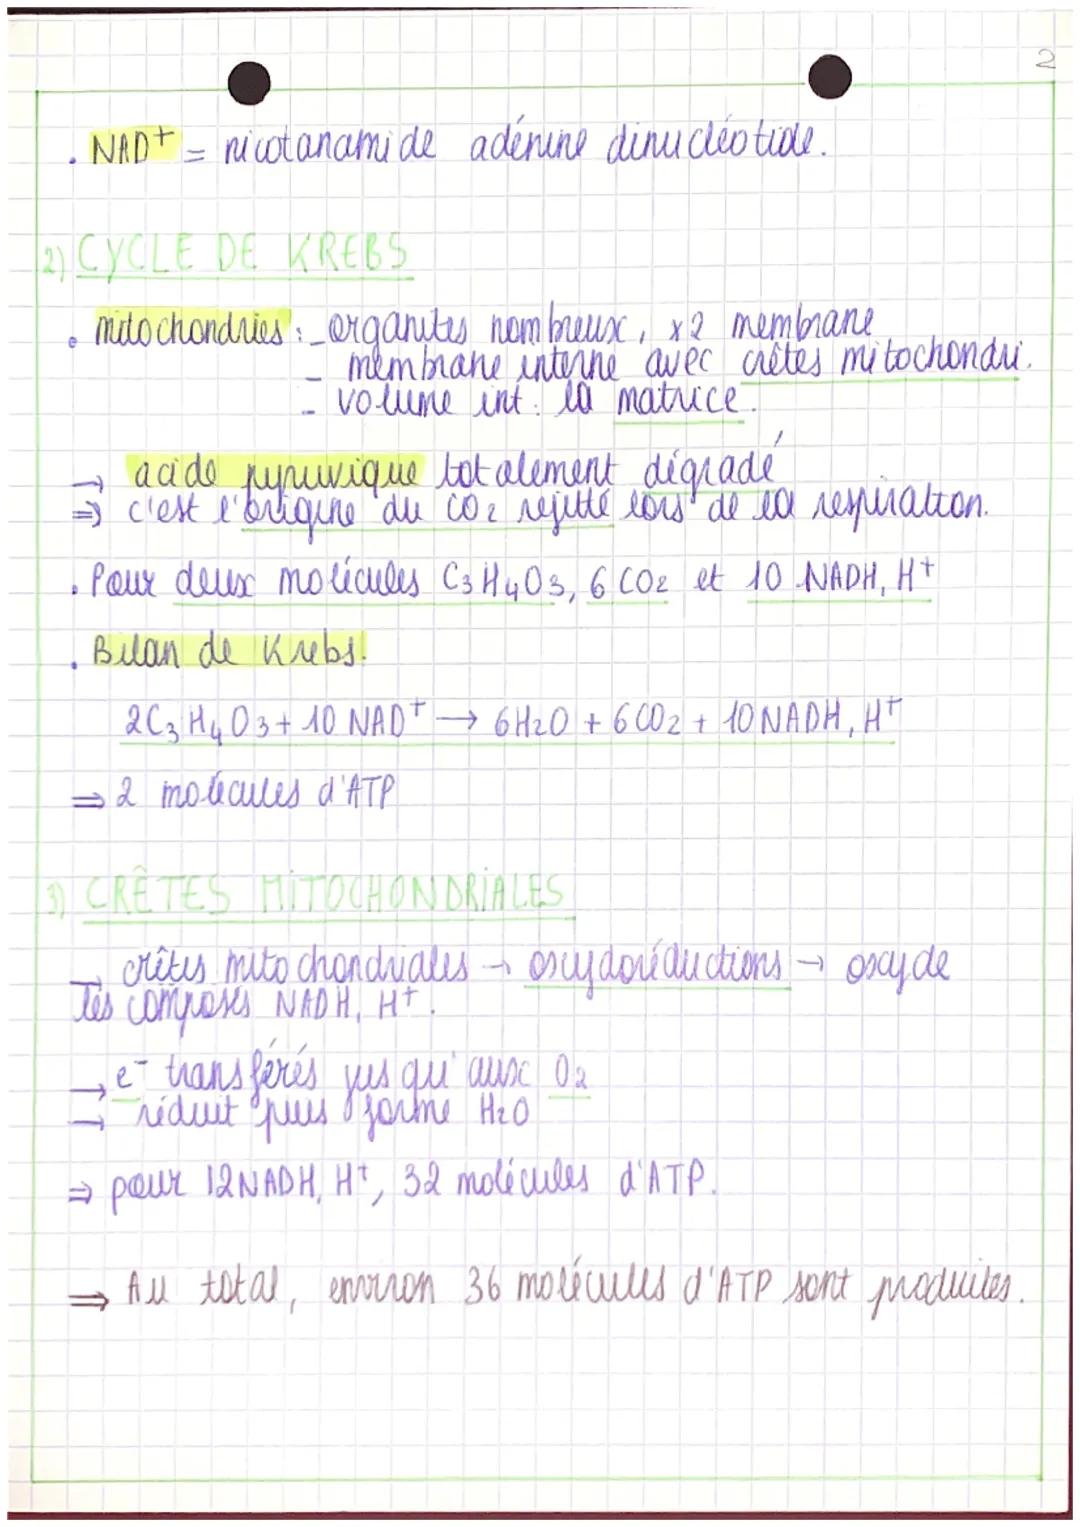 2
. NAD+ = nicotanamide adénine dinucléotide.
2) CYCLE DE KREBS
. mitochondries : - organites nombreux, x2 membrane
- membrane interne avec crêtes mitochondri.
- volume int : la matrice.
→ acide pyruvique totalement dégradé
⇒ c'est l'origine du CO2 rejetté lors de la respiration.
. Pour deux molécules C3H4O3, 6 CO2 et 10 NADH, H+
. Bilan de Krebs.
2C3H4O3 + 10 NAD+ → 6H2O + 6CO2 + 10NADH, H+
⇒ 2 molécules d'ATP
3) CRÊTES MITOCHONDRIALES
→ crêtes mitochondriales → oxydoréductions → oxyde
les composés NADH, H+.
→ e- transférés jusqu'aux O2
→ réduit puis forme H2O
⇒ pour 12NADH, H+, 32 molécules d'ATP.
⇒ Au total, environ 36 molécules d'ATP sont produites.